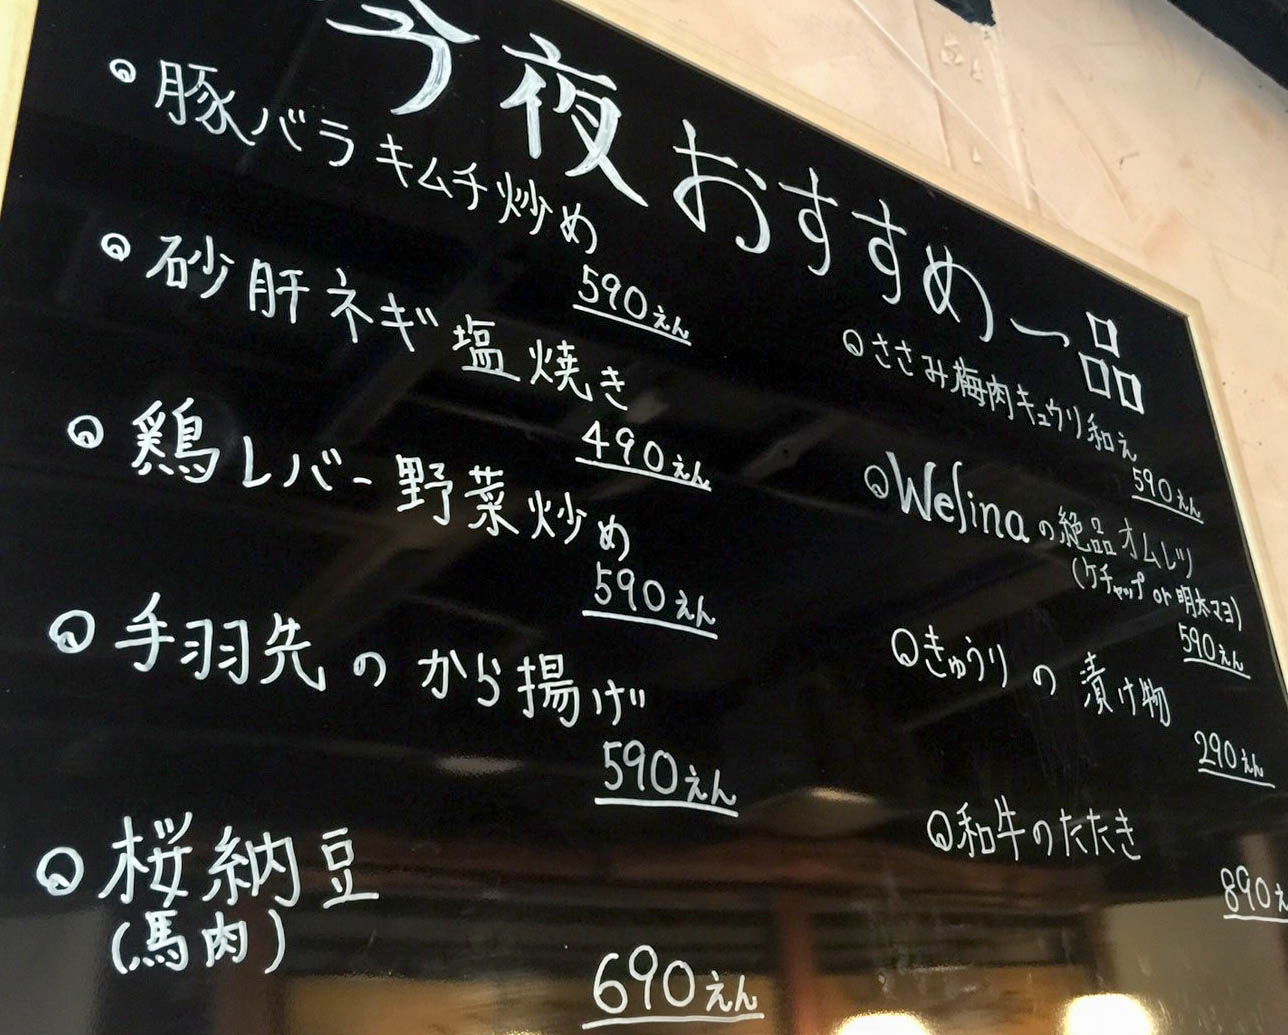 今夜おすすめ一品
豚バラキムチ炒め
590えん
砂肝ネギ塩焼き
490えん
鶏レバー野菜炒め
590えん
手羽先のから揚げ
590えん
桜納豆
(馬肉)
690えん
ささみ梅肉キュウリ和え
590えん
Wesinaの絶品オムレツ
(ケチャップor明太マヨ)
590えん
きゅうりの漬け物
290えん
和牛のたたき
890え